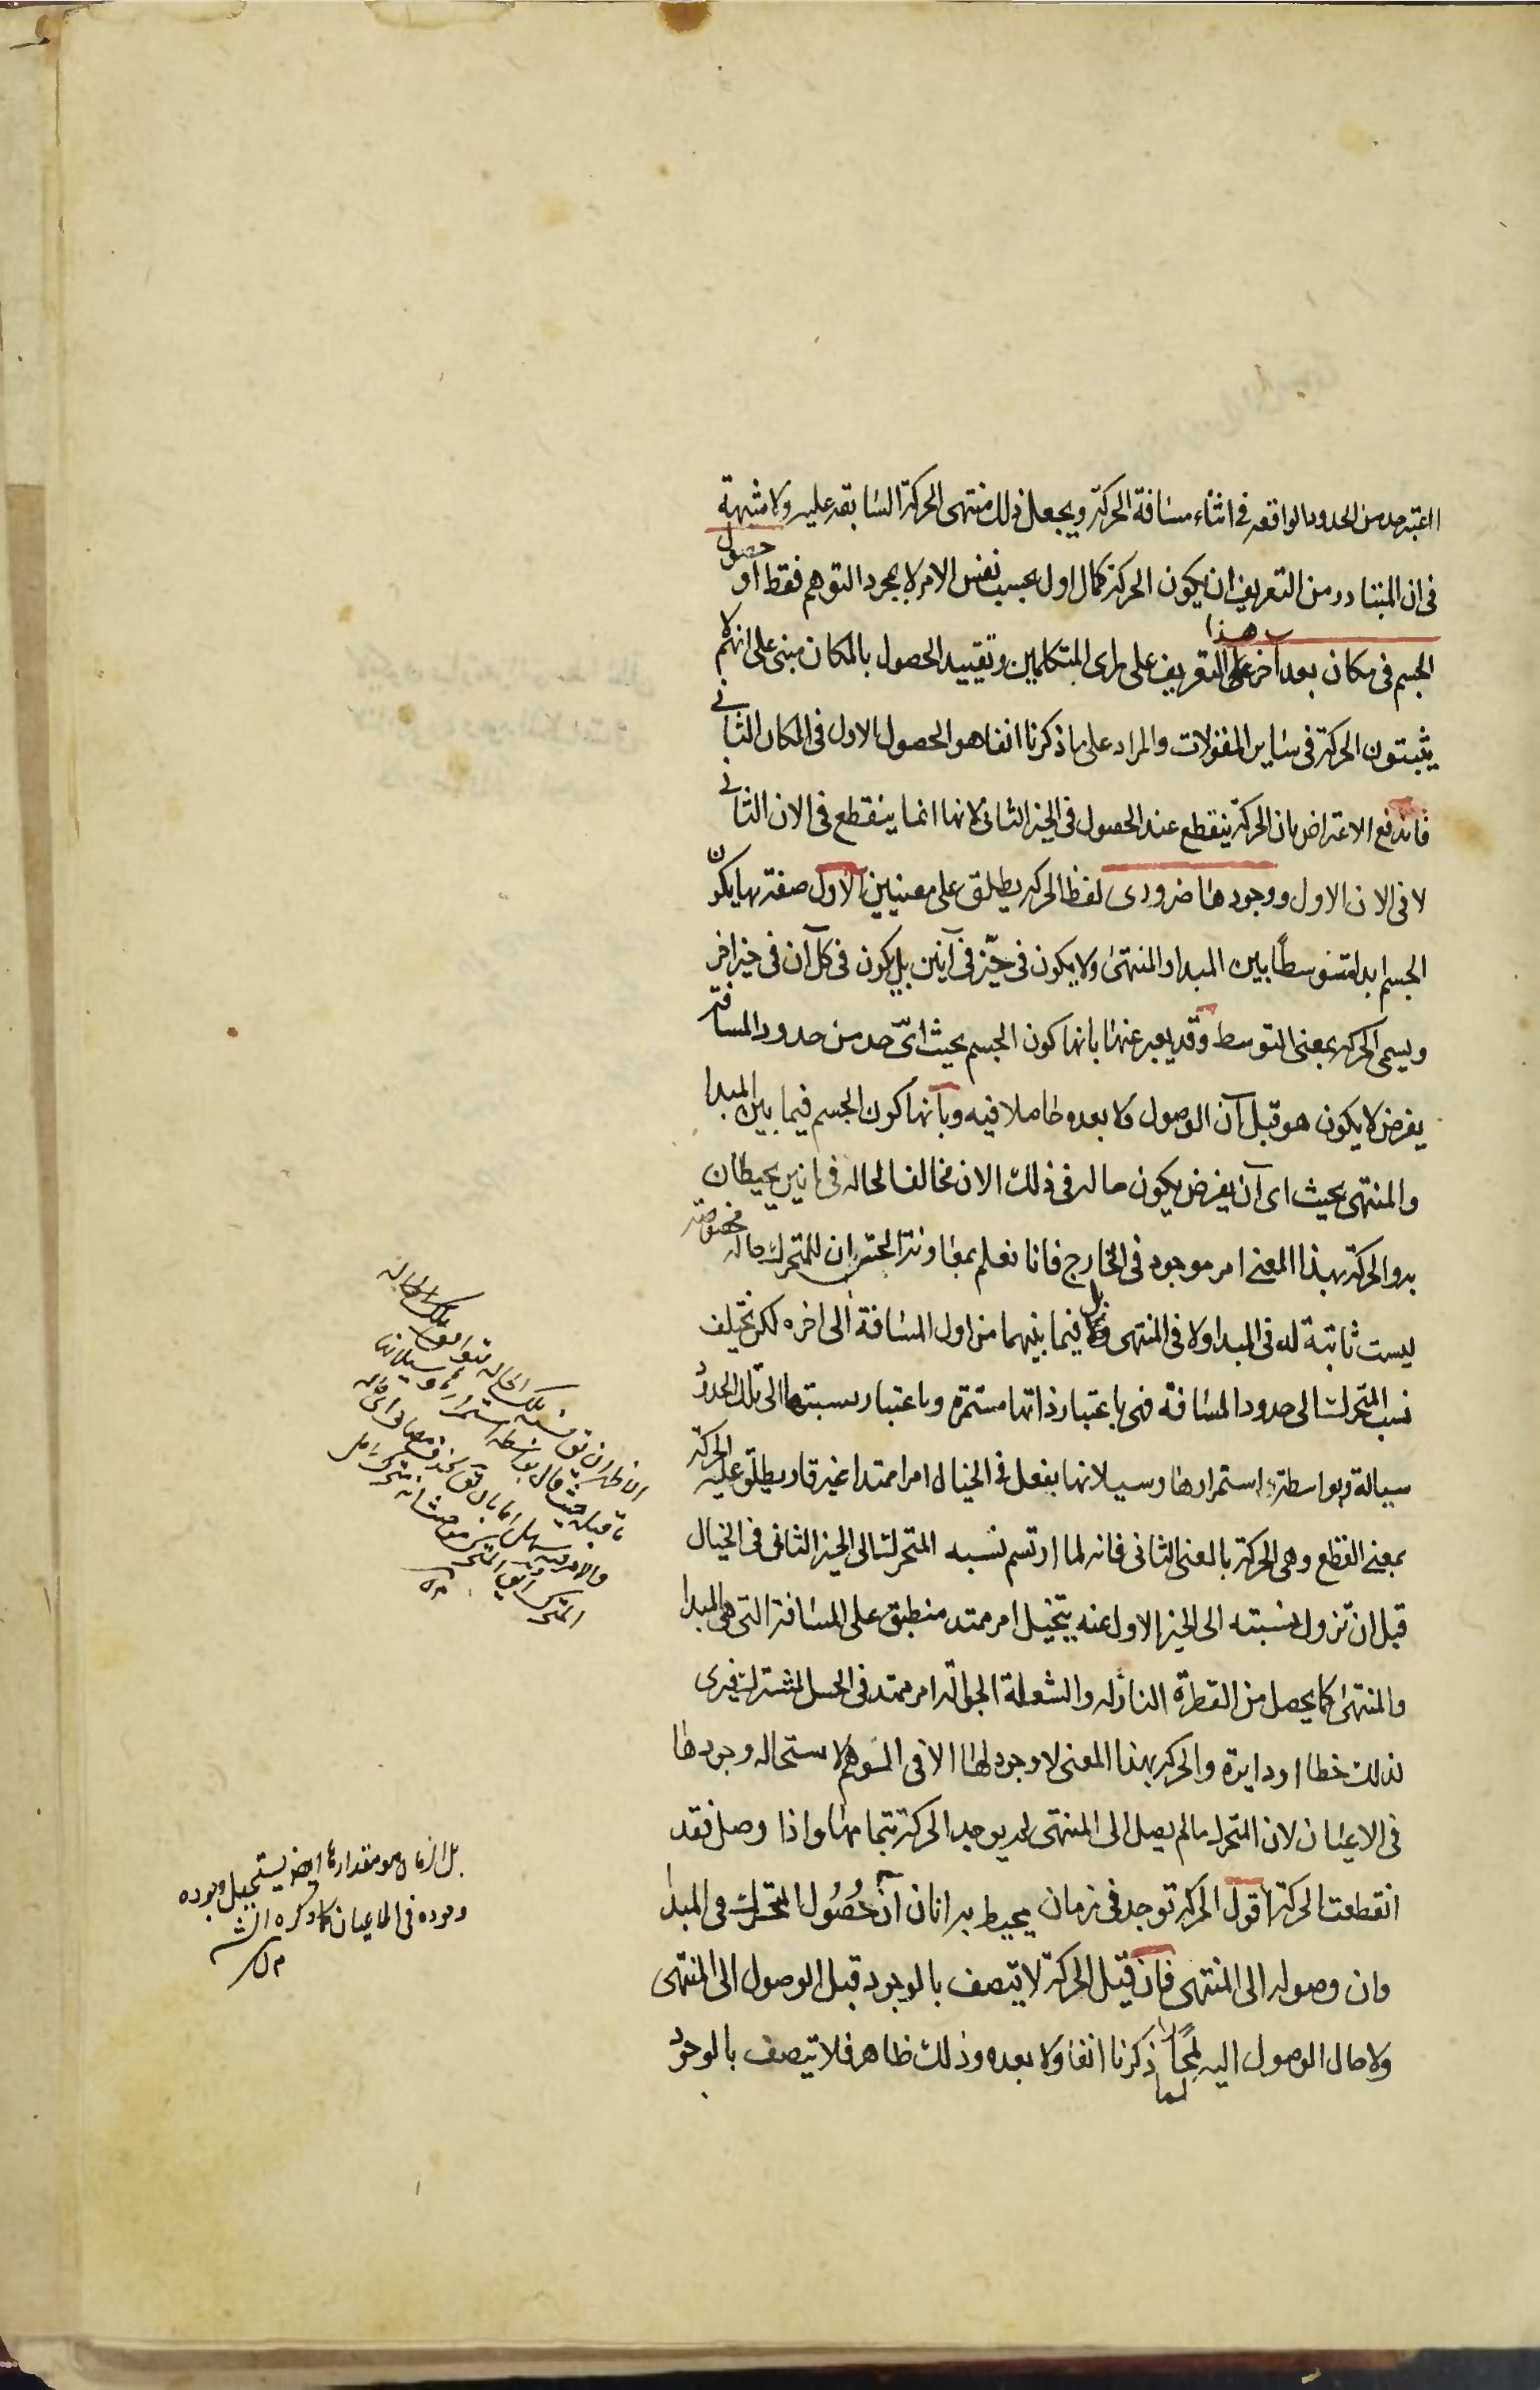 اعتبر حد من الحدود الواقعه فى اثناء مسافة الحركة ويجعل ذلك منتهى الحركة السابقه عليه ولا شبهة
فى ان المتبادر من التعريف ان يكون الحركة كمال اول بحسب نفس الامر لا بمجرد التوهم فقط او حصول
الجسم فى مكان بعد اخر هذا التعريف على راى المتكلمين وتقييد الحصول بالمكان مبنى على انهم لا
يثبتون الحركة فى ساير المقولات والمراد على ما ذكرنا انفا هو الحصول الاول فى المكان الثانى
فاندفع الاعتراض بان الحركة ينقطع عند الحصول فى الحيز الثانى لانها انما ينقطع فى الان الثانى
لا فى الان الاول ووجودها ضرورى لفظ الحركه يطلق على معنيين الاول صفة بها يكون
الجسم ابدا متوسطًا بين المبدا والمنتهى ولا يكون فى حيّز فى آنين بل يكون فى كل آن فى حيز اخر
ويسمى الحركه بمعنى التوسط وقد يعبر عنها بانها كون الجسم بحيث اىّ حد من حدود المسافة
يفرض لا يكون هو قبل آن الوصول ولا بعده حاصلا فيه وبانها كون الجسم فيما بين المبدا
والمنتهى بحيث اى آن يفرض يكون حاله فى ذلك الان مخالفا لحاله فى انين يحيطان
به والحركة بهذا المعنى امر موجود فى الخارج فانا نعلم بمعاونة الحس ان للمتحرك حالة مخصوصة
ليست ثابتة له فى المبدا ولا فى المنتهى بل فيما بينهما من اول المسافة الى اخره لكن تختلف
نسب المتحرك الى حدود المسافة فهى باعتبار ذاتها مستمرة وباعتبار نسبتها الى تلك الحدود
سيالة وبواسطة استمرارها وسيلانها يفعل فى الخيال امرا ممتدا غير قار يطلق عليه الحركة
بمعنى القطع وهى الحركة بالمعنى الثانى فانه لما ارتسم نسبه المتحرك الى الحيز الثانى فى الخيال
قبل ان تزول نسبته الى الحيز الاول عنه يتخيل امر ممتد منطبق على المسافة التى بين المبدا
والمنتهى كما يحصل من القطرة النازله والشعلة الجواله امر ممتد فى الحس المشترك فيرى
لذلك خطا او دايرة والحركه بهذا المعنى لا وجود لها الا فى التوهم لاستحاله وجودها
فى الاعيان لان المتحرك ما لم يصل الى المنتهى لم يوجد الحركة بتمامها واذا وصل فقد
انقطعت الحركة اقول الحركه توجد فى زمان يحيط به انان آن حُصُول المتحرك فى المبدا
وان وصوله الى المنتهى فان قيل الحركة لا يتصف بالوجود قبل الوصول الى المنتهى
ولا حال الوصول اليه لما ذكرنا انفا ولا بعده وذلك ظاهر فلا تيصف بالوجود
بل الزمان هو مقدارها ايضا يستحيل وجوده
وجوده فى الاعيان كما ذكره الش